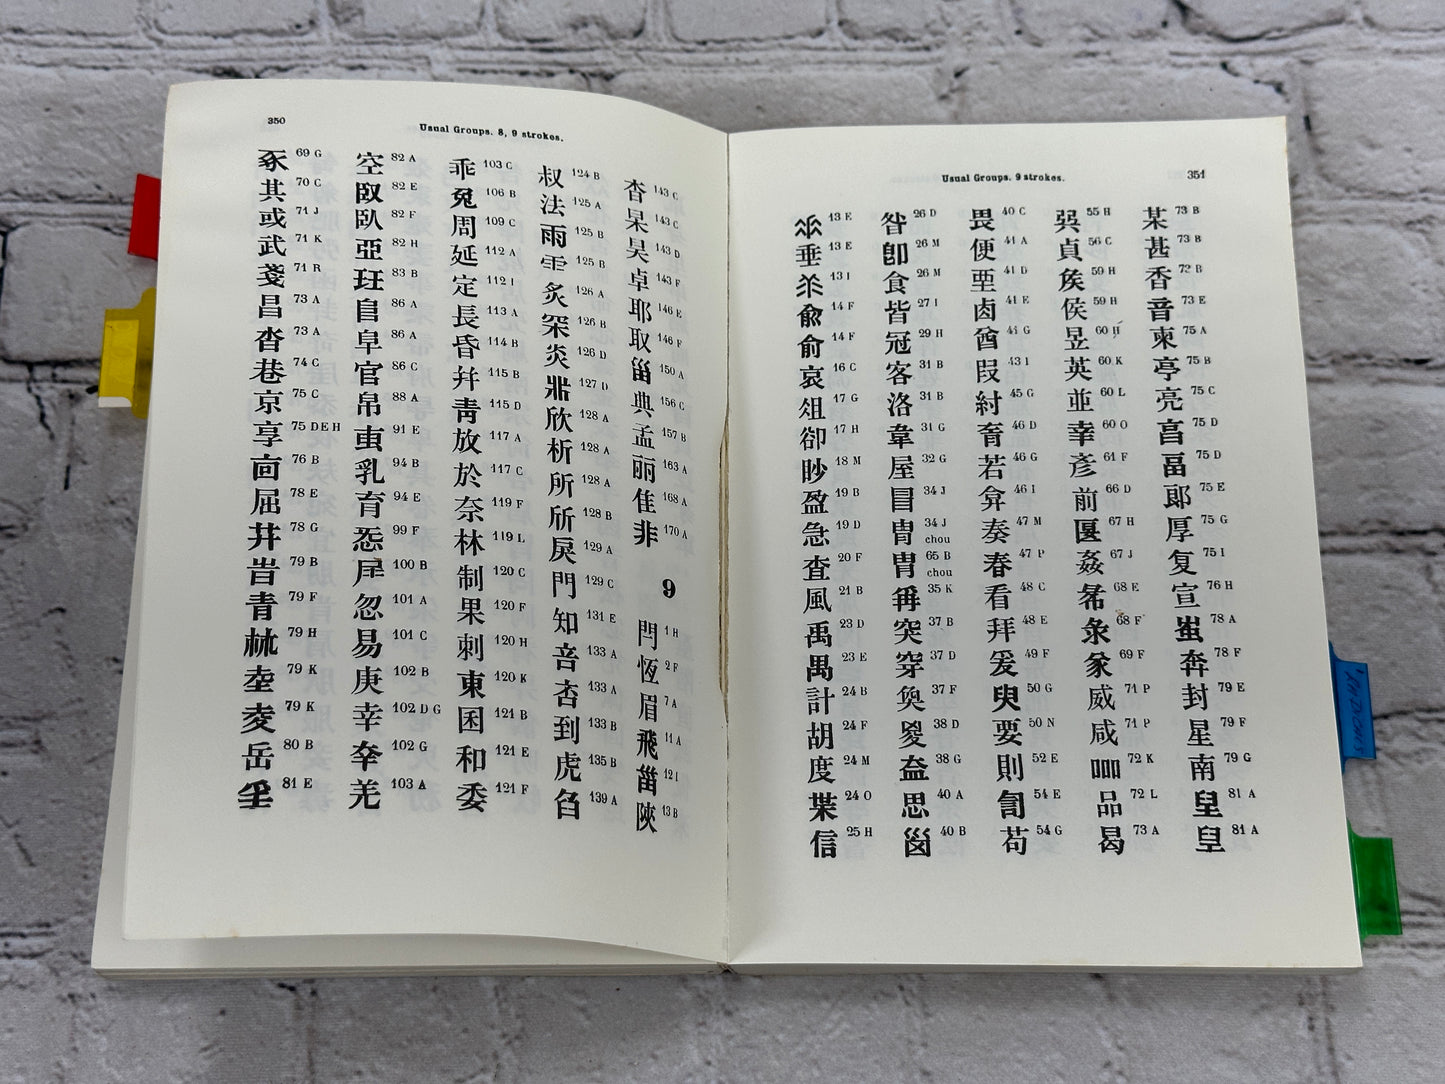 350
Usual Groups. 8, 9 strokes.
豕 69 G
其 70 C
或 71 J
武 71 K
戔 71 R
昌 73 A
沓 73 A
巷 74 C
京 75 C
享 75 DEH
㐭 76 B
屈 78 E
幷 78 G
岩 79 B
青 79 F
79 H
坴 79 K
夌 79 K
岳 80 B
81 E
空 82 A
臤 82 E
臥 82 F
亞 82 H
玨 83 B
86 A
阜 86 A
官 86 C
帛 88 A
91 E
乳 94 B
育 94 E
99 F
100 B
忽 101 A
易 101 C
庚 102 B
幸 102 D G
102 G
羌 103 A
乖 103 C
兔 106 B
周 109 C
延 112 A
定 112 I
長 113 A
昏 114 B
幷 115 B
靑 115 D
放 117 A
於 117 C
奈 119 F
林 119 L
制 120 C
果 120 F
刺 120 H
東 120 K
囷 121 B
和 121 E
委 121 F
叔 124 B
法 125 A
雨 125 B
125 B
炙 126 A
罙 126 B
炎 126 D
127 D
欣 128 A
析 128 A
所 128 A
斦 128 B
戾 129 A
門 129 C
知 131 E
咅 133 A
杏 133 A
到 133 B
虎 135 B
臽 139 A
杳 143 C
杲 143 C
昊 143 D
卓 143 F
耶 146 E
取 146 F
甾 150 A
典 156 C
孟 157 B
丽 163 A
隹 168 A
非 170 A
9
閂 1 H
恆 2 F
眉 7 A
飛 11 A
12 I
陝 13 B
Usual Groups. 9 strokes.
351
13 E
垂 13 E
13 I
兪 14 F
俞 14 F
哀 16 C
俎 17 G
卻 17 H
眇 18 M
盈 19 B
急 19 D
査 20 F
風 21 B
禹 23 D
禺 23 E
計 24 B
胡 24 F
度 24 M
枼 24 O
信 25 H
昝 26 D
卽 26 M
食 26 M
皆 27 I
冠 29 H
客 31 B
洛 31 B
韋 31 G
屋 32 G
34 J
冑 34 J
chou
胄 65 B
chou
爯 35 K
突 37 B
穿 37 D
奐 37 F
夋 38 D
盇 38 G
思 40 A
囟 40 B
畏 40 C
便 41 A
垔 41 D
卥 41 E
酋 41 G
叚 43 I
紂 45 G
46 D
若 46 G
弇 46 I
奏 47 M
春 47 P
看 48 C
拜 48 E
爰 49 F
臾 50 G
要 50 N
則 52 E
訇 54 E
苟 54 G
吳 55 H
貞 56 C
矦 59 H
侯 59 H
昱 60 H
英 60 K
並 60 L
幸 60 O
彥 61 F
前 66 D
匽 67 H
姦 67 J
68 E
68 F
彖 69 F
威 71 P
咸 71 P
72 K
品 72 L
曷 73 A
某 73 B
甚 73 B
香 73 B
音 73 E
柬 75 A
亭 75 B
亮 75 C
亯 75 D
畐 75 D
郞 75 E
厚 75 G
复 75 I
宣 76 H
78 A
奔 78 F
封 79 E
星 79 F
南 79 G
皇 81 A
皇 81 A